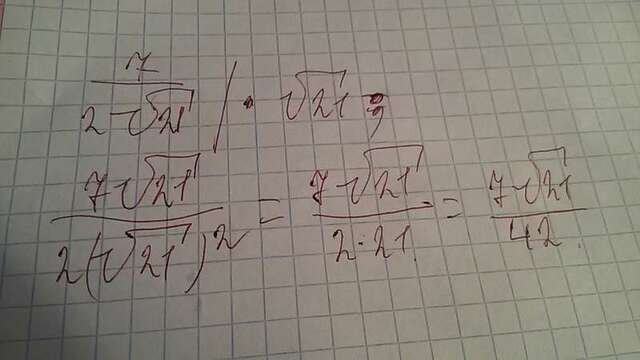 7/(2√21) / · √21;
7√21/(2(√21)²) = 7√21/(2·21) = 7√21/42.